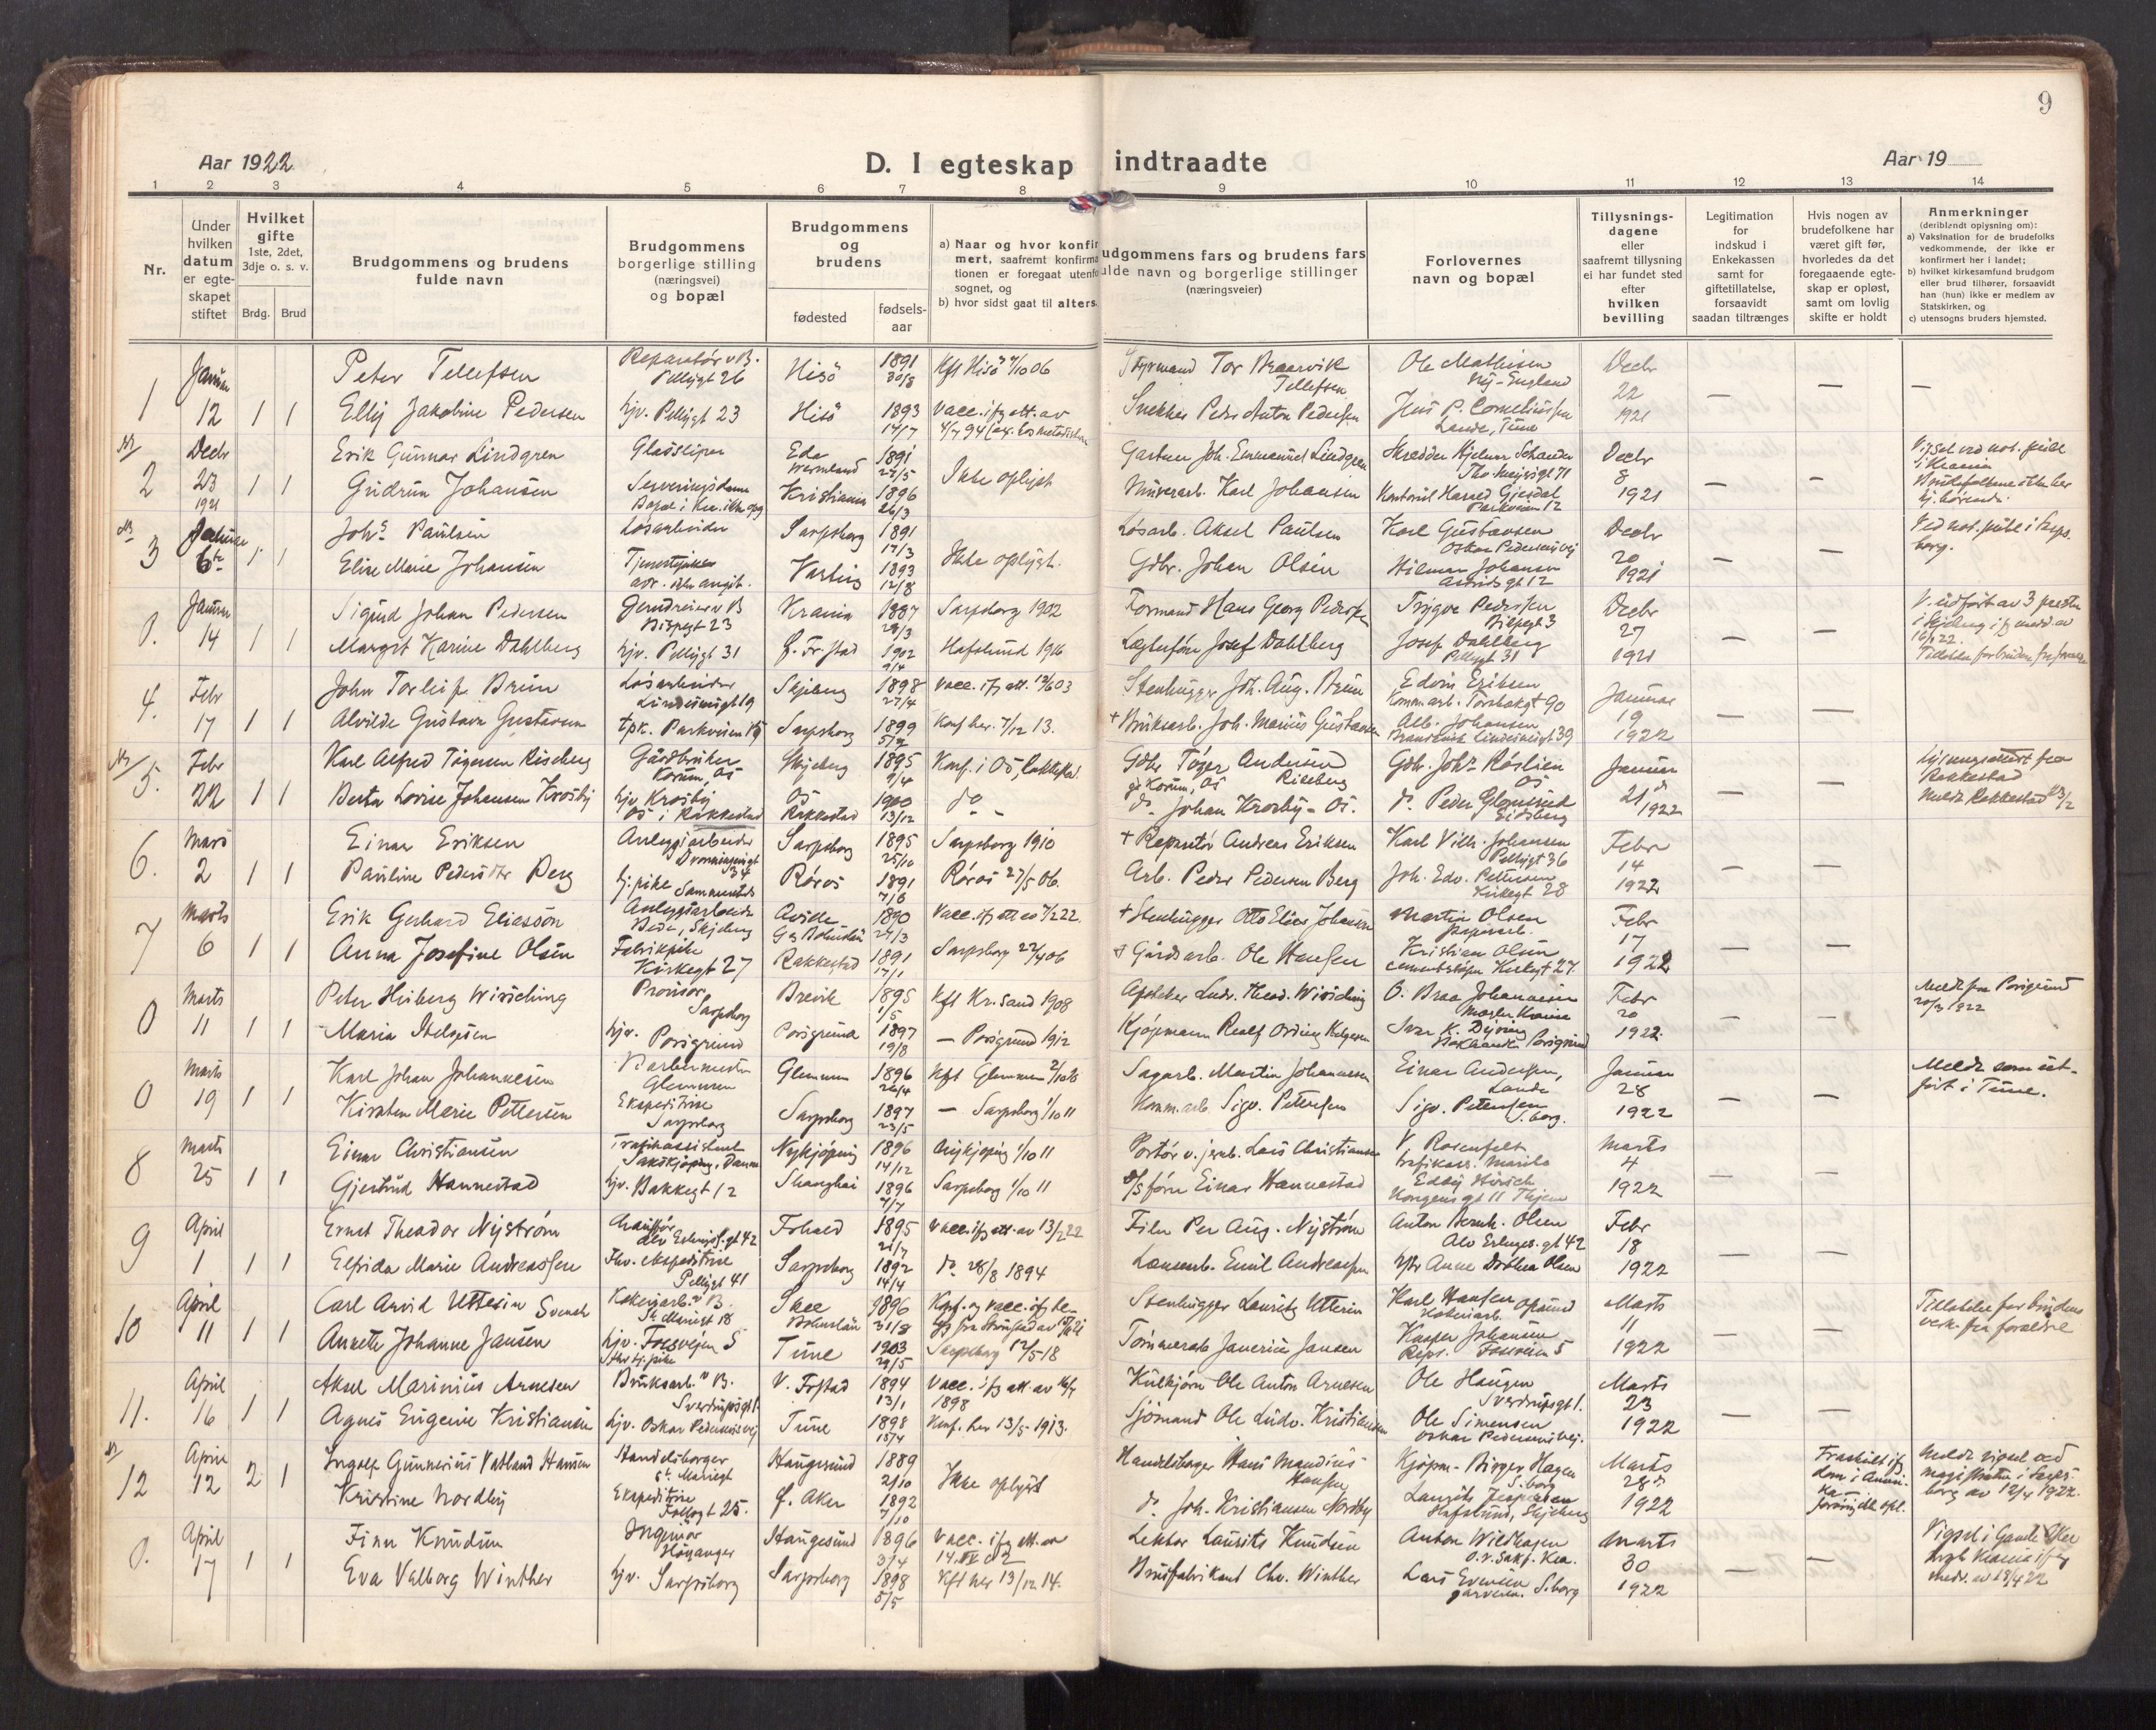 9
Aar 1922
D. I egteskap indtraadte
Aar 19
1 2 3 4 5 6 7 8 9 10 11 12 13 14
Nr.
Under hvilken datum er egteskapet stiftet
Hvilket gifte
1ste, 2det, 3dje o. s. v.
Brdg. Brud
Brudgommens og brudens fulde navn
Brudgommens borgerlige stilling (næringsvei) og bopæl
Brudgommens og brudens
fødested
fødsels-aar
a) Naar og hvor konfir
mert, saafremt konfirma
tionen er foregaat utenfo
sognet, og
b) hvor sidst gaat til alters.
udgommens fars og brudens fars
ulde navn og borgerlige stillinger
(næringsveier)
Forlovernes navn og bopæl
Tillysnings-dagene eller saafremt tillysning ei har fundet sted efter hvilken bevilling
Legitimation for indskud i Enkekassen samt for giftetillatelse, forsaavidt saadan tiltrænges
Hvis nogen av brudefolkene har været gift før, hvorledes da det foregaaende egte-skap er opløst, samt om lovlig skifte er holdt
Anmerkninger
(deriblandt oplysning om):
a) Vaksination for de brudefolks vedkommende, der ikke er konfirmert her i landet;
b) hvilket kirkesamfund brudgom eller brud tilhører, forsaavidt han (hun) ikke er medlem av Statskirken, og
c) utensogns bruders hjemsted.
1 Januar 12 1 1
Peter Tellefsen Reparatör v B. Pellygt 26 Hisö 1891 30/8 Kft Hisö 7/10 06 Styrmand Tor Braarvik Tellefsen Ole Mathisen Ny-England Decbr 22 1921
Elly Jakobine Pedersen hjv. Pellygt 23 Hisö 1893 14/7 Vacc. ifg att. av 4/7 94 Snekker Peder Anton Pedersen Jens P. Corneliussen Lande, Tune
2 Decbr 23 1921 1 1
Erik Gunnar Lindgren Glassliper Eda Wermland 1891 27/5 Ikke oplyst Gartner Joh. Emmanuel Lindgren Skredder Hjalmar Schander Tho Meyersgt 71 Decbr 8 1921
Gudrun Johansen Serveringsdame Kristiania 1896 26/3 Murerarb. Karl Johansen Kontorist Harald Gjesdal Parkveien 12
3 Januar 6te 1 1
Johs Paulsen Lösarbeider Sarpsborg 1891 17/3 Ikke oplyst. Lösarb. Aksel Paulsen Karl Gustavsen Oskar Pedersens vej Decbr 20 1921 Ved not. publ. i Sarpsborg.
Elise Marie Johansen Tjenestepike adr. ikke angit. Varteig 1893 12/8 Gdbr. Johan Olsen Hilmar Johansen Astridsgt 12
0. Januar 14 1 1
Sigurd Johan Pedersen Jerndreier v B Bispegt 23 Krania 1887 29/3 Sarpsborg 1902 Formand Hans Georg Pedersen Trygve Pedersen Bispegt 3 Decbr 27 1921
Margit Karine Dahlberg hjv. Pellygt 31 1902 9/4 Hafslund 1916 Josef Dahlberg Josef Dahlberg Pellygt 31
4. Febr 17 1 1
John Torleif Brun Lösarbeider Lindemansgt 19 Skjeberg 1898 27/4 Vacc. ifg att. 12/6 03 Stenhugger Joh. Aug. Brun Edvin Eriksen Komm. arb. Torsbakgt 90 Januar 19 1922
Alvilde Gustava Gustavsen Parkveien Sarpsborg 1899 5/2 Konf her. 7/12 13. + Bruksarb. Joh. Marius Gustavsen Alb. Johansen 39
5. Febr 22 1 1
Karl Alfred Tögersen Riseberg Gårdbruker Korum, Os Skjeberg 1895 9/4 Konf. i Os, Rakkestad Gdbr Töger Andersen Riseberg Korum, Os Gdbr. Johs Röslien Os Januar 21de 1922 Rakkestad
Berta Lovise Johansen Krosby hjv Krosby Os i Rakkestad Os Rakkestad 1900 13/12 do do Johan Krosby - Os. do Peder Glomsrud Eidsberg
6. Mars 2 1 1
Einar Eriksen Anleggsarbeider Dronningensgt 34 Sarpsborg 1895 25/10 Sarpsborg 1910 + Reparatör Andreas Eriksen Karl Vilh. Johansen Pellygt 36 Febr 14 1922
Pauline Pedersdtr Berg tj.pike sammesteds Röros 1891 7/6 Röros 27/5 06. Arb. Peder Pedersen Berg Joh. Edv. Pettersen Kirkegt 28
7 Marts 6 1 1
Erik Gerhard Eliasson Anleggsarbeider Skjeberg 1890 27/3 Vacc. ifg att av 7/2 22. + Stenhugger Otto Elias Johansson Martin Olsen Febr 17 1922
Anna Josefine Olsen Fabrikpike Kirkegt 27 Rakkestad 1891 17/1 Sarpsborg 22/4 06 + Gårdsarb. Ole Hansen Kristian Olsen Kirkegt 27.
0 Marts 11 1 1
Peter Heiberg Wisching Provisor, Sarpsborg Brevik 1895 1/5 Kft Kr.sand 1908 Apoteker Ludv. Thead. Wisching O. Braa Johannesen Febr 20 1922 Meldt fra Porsgrund 20/3 1922
Maria Helgesen hjv. Porsgrund Porsgrund 1897 19/8 — Porsgrund 1912 Kjöpmann Realf Ording Helgesen Ivar K. Porsgrund
0 Marts 19 1 1
Karl Johan Johannesen Barbermester Glemmen Glemmen 1896 26/4 Kft Glemmen 2/10 10 Sagarb. Martin Johannesen Einar Andersen, Lande Januar 28 1922 Meldt som utfört i Tune.
Kirsten Marie Pettersen Ekspeditrise Sarpsborg Sarpsborg 1897 23/5 — Sarpsborg 1/10 11 Komm.arb. Sigv. Petersen Sigv. Petersen S.borg.
8 Marts 25 1 1
Einar Christiansen Trafikassistent Sakskjöping, Danm Nykjöping 1896 14/12 Nykjöping 1/10 11 Portör v. jernb. Lars Christiansen V. Rosenfelt trafikass. Maribo Marts 4 1922
Gjertrud Hannestad hjv. Bakkegt 12 Shanghai 1896 7/7 Sarpsborg 1/10 11 D/S förer Einar Hannestad Kongensgt 11
9 April 1 1 1
Ernst Theodor Nyström Chaufför Alv Erlingss.gt 42 1895 21/7 Vacc. ifg att. av 13/2 22 Filer Per Aug. Nyström Anton Bernh. Olsen Alv Erlings. gt 42 Febr 18 1922
Elfrida Marie Andreassen Fhv. ekspeditrise Pellygt 41 Sarpsborg 1892 14/4 do 28/8 1894 Emil Andreassen Anne Dorthea Olsen
10 April 11 1 1
Carl Arvid Utterin Svensk St. Mariegt 18 Skee Bohuslän 1896 31/8 Stenhugger Lauritz Utterin Karl Hansen Marts 11 1922 Tilladelse for brudens verk. fra forældre
Annette Johanne Jansen hjv. Fossvejen 5 Tune 1903 29/5 Sarpsborg 12/5 18 Tömmerarb Janerius Jansen Kasper Johansen Fossveien 5
11. April 16 1 1
Aksel Marinius Arnesen Bruksarb. v B. Sverdrupsgt 1. V. Frstad 1894 13/1 Vacc. ifg att. av 16/7 1898 Kulkjörer Ole Anton Arnesen Ole Haugen Sverdrupsgt 1. Marts 23 1922
Agnes Eugenie Kristiansen hjv. Oskar Pedersens vej Tune 1898 15/4 Konf. her 13/5 1913. Sjömand Ole Ludv. Kristiansen Ole Simensen Oskar Pedersens vej.
12 April 12 2 1
Ingolf Gunnerius Vatland Hansen Handelsborger St. Mariegt Haugesund 1889 2/10 Ikke oplyst Handelsborger Hans Mandius Hansen Kjöpm. Birger Hagen S.borg Marts 28de 1922 Meldt vigsel ved magistraten i Sarpsborg av 12/4 1922.
Kristine Nordby Ekspeditrise 25. f. Aker 1892 7/10 do Joh. Kristiansen Nordby Lauritz Jespersen Hafslund, Skjeberg
0. April 17 1 1
Finn Knudsen Ingeniör Höyanger Haugesund 1896 3/4 Vacc. ifg att. av Lektor Laurits Knudsen Anton Wildhagen o.r.sakf. Kra. Marts 30 1922
Eva Valborg Winther hjv. Sarpsborg Sarpsborg 1898 5/5 Kft her 13/12 14. Brusfabrikant Chr. Winther Lars Evensen S.borg